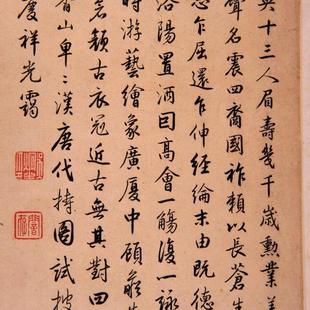 英十三人眉壽幾千歲勲業羊
聲名震四裔國祚賴以長蒼生
忽乍屈還乍伸經綸未由既德
洛陽置酒曰高會一觴復一詠
時游藝繪象廣厦中頎髯生
老顏古衣冠近古無其對四
香山卑卑漢唐代持圖試披
慶祥光靄